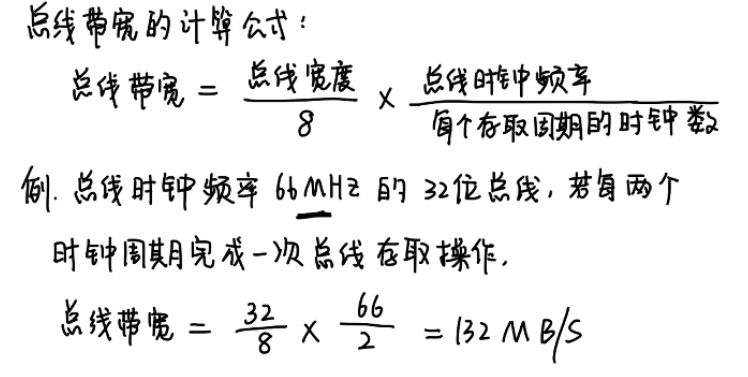 总线带宽的计算公式：
总线带宽 = 总线宽度/8 × 总线时钟频率/每个存取周期的时钟数
例. 总线时钟频率 66MHz 的 32位总线，若每两个
时钟周期完成一次总线存取操作，
总线带宽 = 32/8 × 66/2 = 132 MB/S